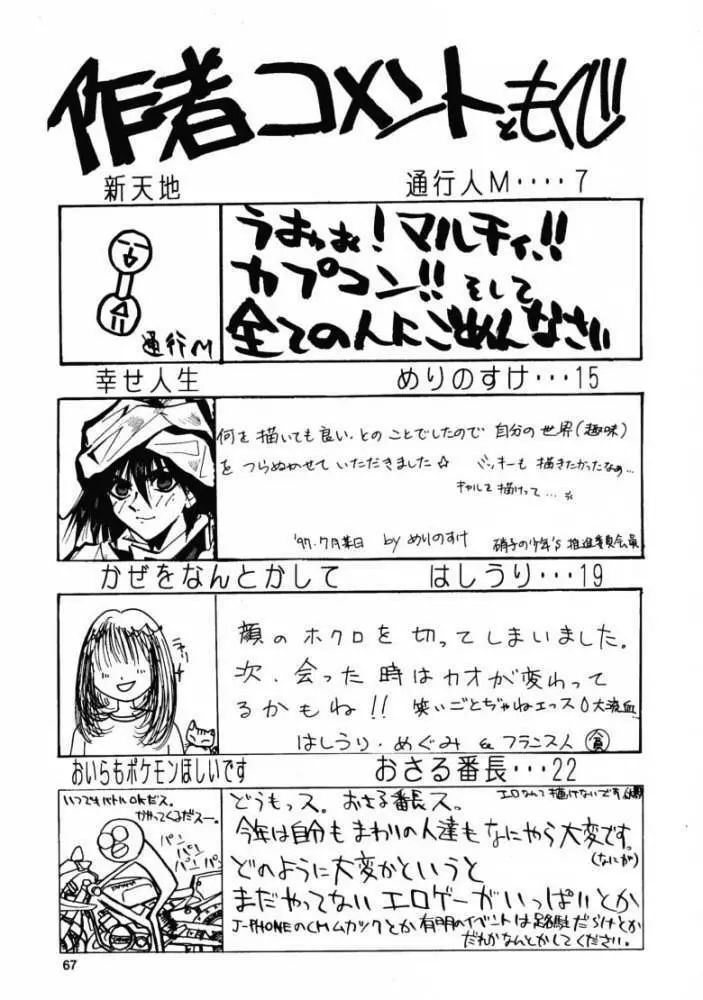 作者コメントともくじ
新天地 通行人M････7
うおぉお!マルチィ!!
カプコン!!そして
全ての人にごめんなさい
通行M
幸せ人生 めりのすけ･･･15
何を描いても良い、とのことでしたので 自分の世界(趣味)
をつらぬかせていただきました☆ バッキーも描きたかったなぁ…
ギャルで描けって…
'97.7月某日 by めりのすけ 硝子の少年's 推進委員会員
かぜをなんとかして はしうり･･･19
顔のホクロを切ってしまいました。
次、会った時はカオが変わって
るかもね!! 笑いごとぢゃねエっス 大流血
はしうり・めぐみ & フランス人 貧
おいらもポケモンほしいです おさる番長･･･22
いつでもバトルOKだス。
かかってくるだスー。
パン
パン パン
パン パン
どうもっス。おさる番長ス。
今年は自分もまわりの人達もなにやら大変です。
(なにが)
どのように大変かというと
まだやってないエロゲーがいっぱいとか
J-PHONEのCMムカツクとか有明のイベントは路駐だらけとか
だれかなんとかしてください。
67